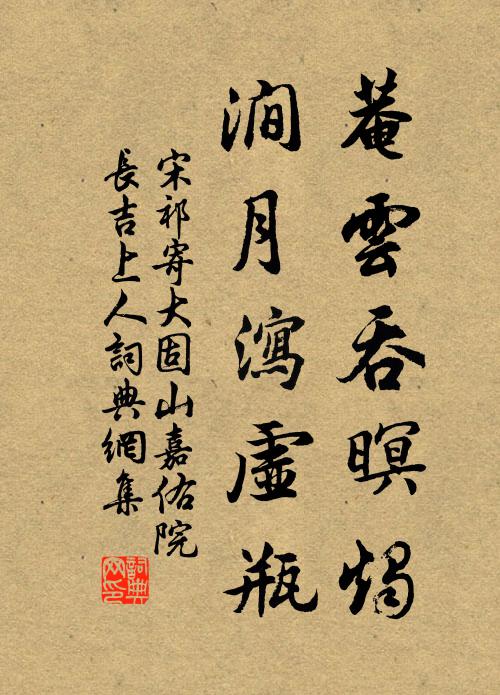 菴雲吞暝燭
澗月瀉虛瓶
宋祁寄大固山嘉佑院
長吉上人詞典網集
詞典网印